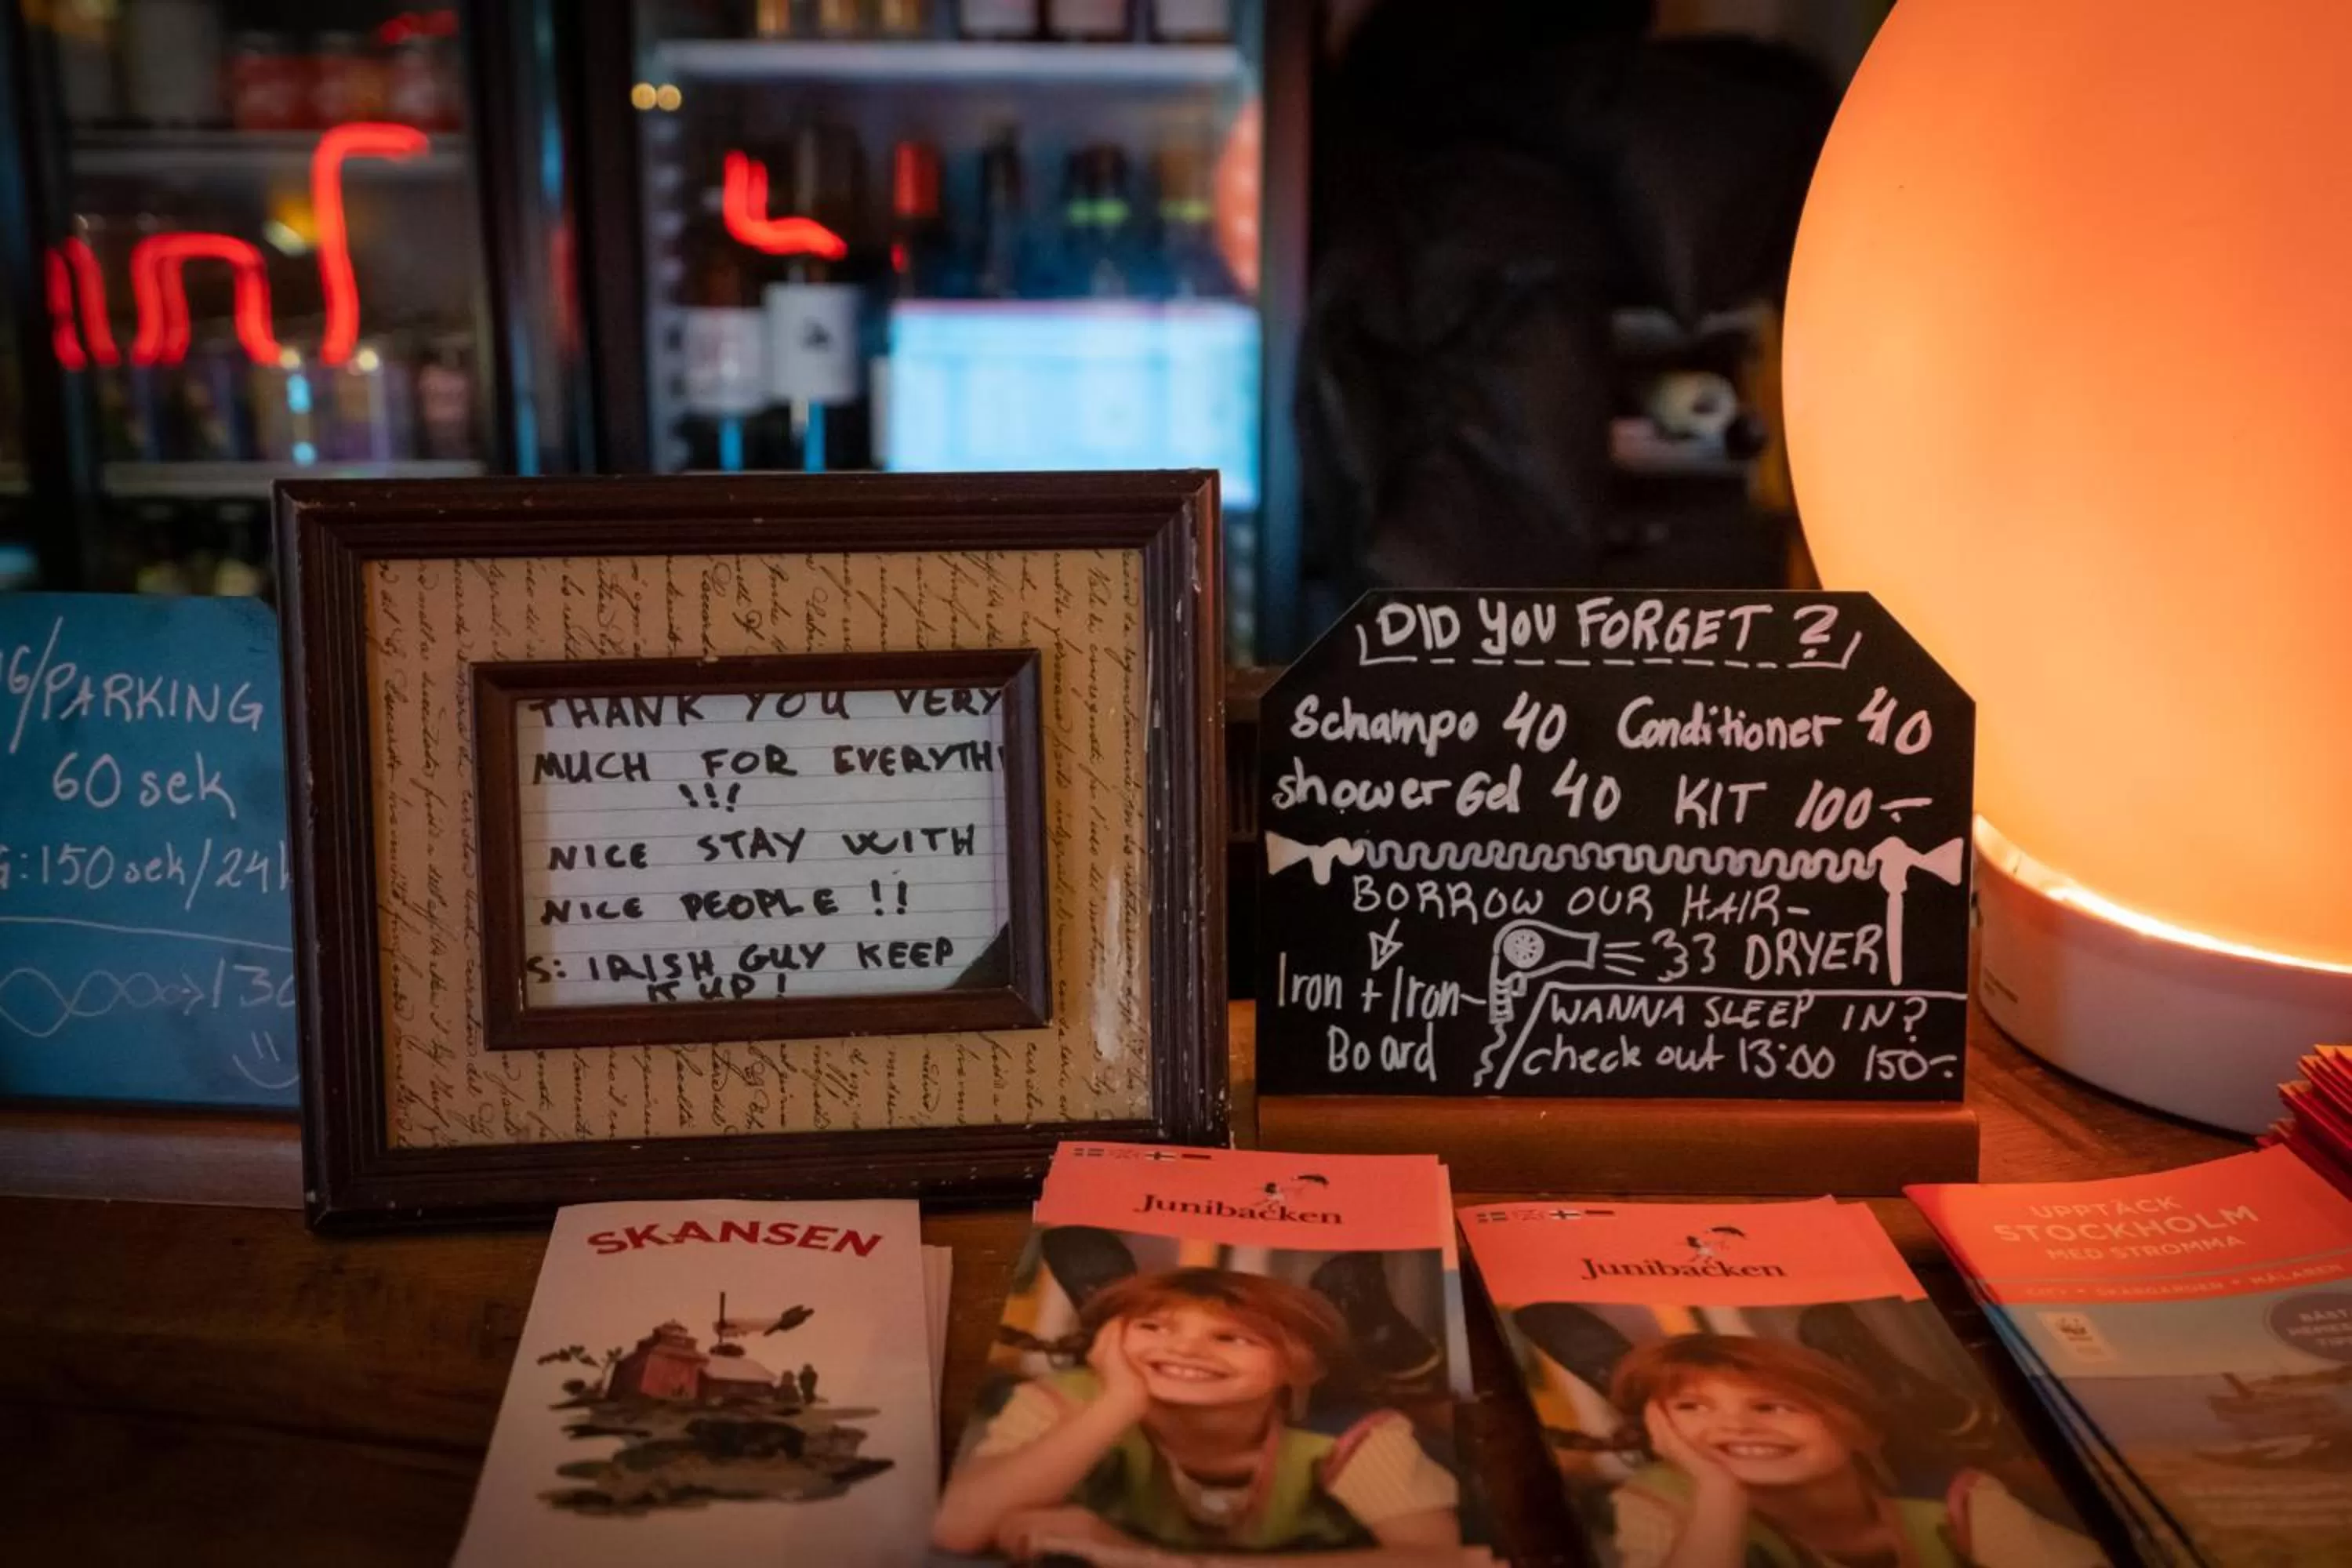 /PARKING
60 sek
:150 sek/24h
130
THANK YOU VERY
MUCH FOR EVERYTHI
!!!
NICE STAY WITH
NICE PEOPLE !!
S: IRISH GUY KEEP
IT UP!
DID YOU FORGET ?
Schampo 40 Conditioner 40
shower Gel 40 KIT 100:-
BORROW OUR HAIR-
DRYER
Iron + Iron-
Board
WANNA SLEEP IN?
check out 13:00 150:-
SKANSEN
Junibacken
Junibacken
UPPTÄCK
STOCKHOLM
MED STROMMA
SKÄRGÅRDEN • MÄLAREN